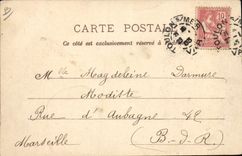 CARTE POSTALE
Ce côté est exclusivement réservé à
Mlle Magdeleine Darmure
Modiste
Rue d'Aubagne
Marseille (B-d-R)